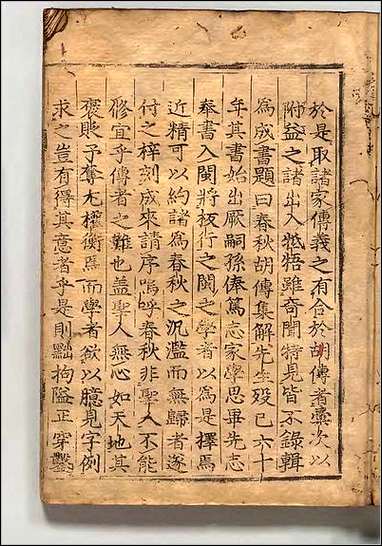 於是取諸家傳義之有合於胡傳者彙次以
附益之諸出入牴牾雖奇聞特見皆不錄輯
爲成書題曰春秋胡傳集解先生歿已六十
年其書始出厥嗣孫俸篤志家學思畢先志
奉書入閩將板行之閩之學者以爲是擇焉
近精可以約諸爲春秋之汎濫而無歸者遂
付之梓刻成來請序嗚呼春秋非聖人不能
修宜乎傳者之難也盖聖人無心如天地其
褒貶予奪尤權衡焉而學者欲以臆見字例
求之豈有得其意者乎是則黜拘隘正穿鑿